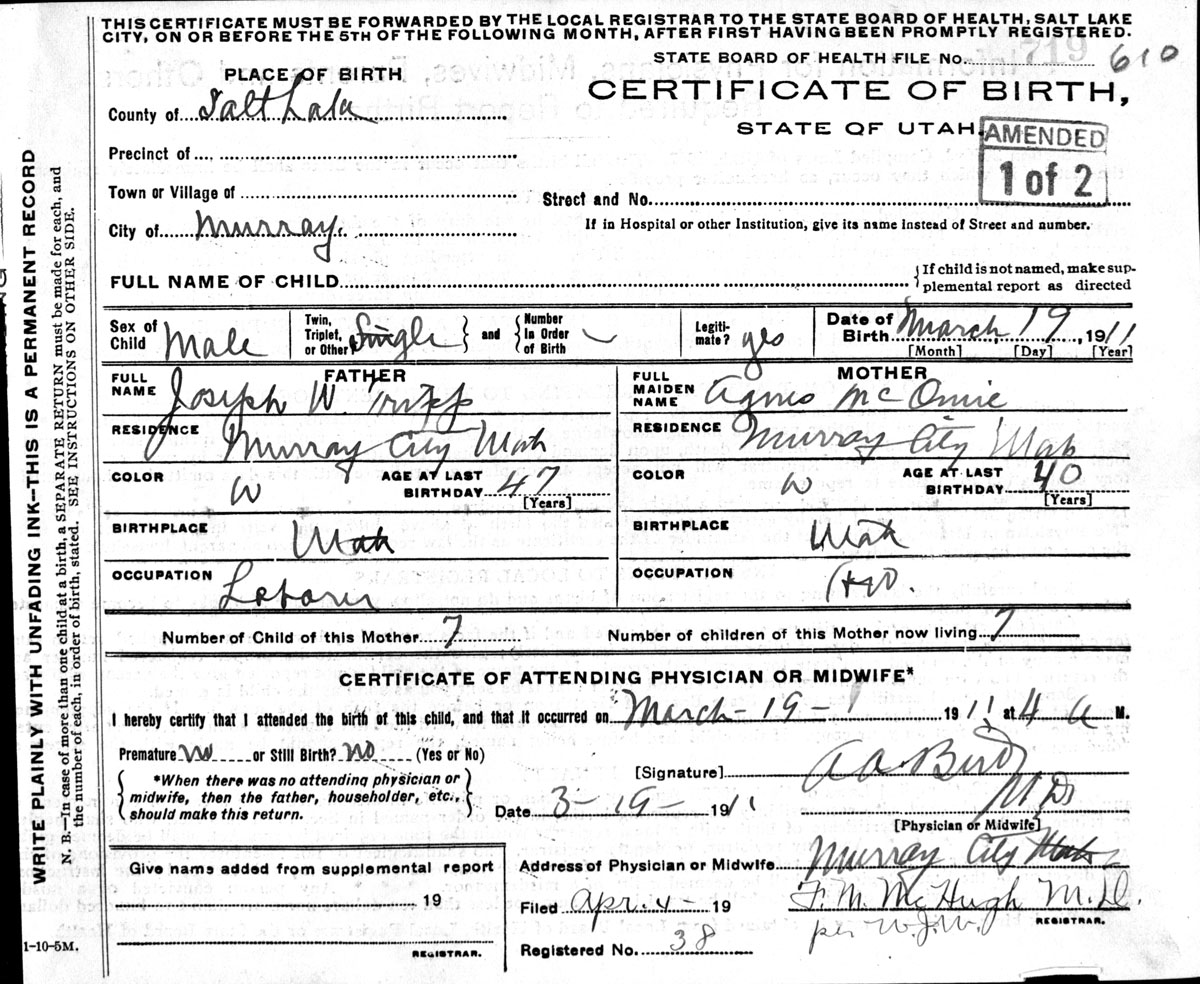 THIS CERTIFICATE MUST BE FORWARDED BY THE LOCAL REGISTRAR TO THE STATE BOARD OF HEALTH, SALT LAKE
CITY, ON OR BEFORE THE 5TH OF THE FOLLOWING MONTH, AFTER FIRST HAVING BEEN PROMPTLY REGISTERED.
STATE BOARD OF HEALTH FILE No. 719 610
PLACE OF BIRTH
CERTIFICATE OF BIRTH,
County of Salt Lake
STATE OF UTAH
AMENDED
1 of 2
Precinct of
Town or Village of
Street and No.
City of Murray.
If in Hospital or other Institution, give its name instead of Street and number.
FULL NAME OF CHILD
{If child is not named, make sup-
plemental report as directed
Sex of Child Male
Twin, Triplet, or Other Single } and { Number in Order of Birth
Legiti-mate? yes
Date of Birth March 19, 1911
[Month] [Day] [Year]
FATHER
FULL NAME Joseph W. Tripp
RESIDENCE Murray City Utah
COLOR W AGE AT LAST BIRTHDAY 47 [Years]
BIRTHPLACE Utah
OCCUPATION Laborer
MOTHER
FULL MAIDEN NAME Agnes McOmie
RESIDENCE Murray City Utah
COLOR W AGE AT LAST BIRTHDAY 40 [Years]
BIRTHPLACE Utah
OCCUPATION
Number of Child of this Mother 7 Number of children of this Mother now living 7
CERTIFICATE OF ATTENDING PHYSICIAN OR MIDWIFE*
I hereby certify that I attended the birth of this child, and that it occurred on March-19- 1911 at 4 a M.
Premature no or Still Birth? no (Yes or No)
{ *When there was no attending physician or midwife, then the father, householder, etc., should make this return. }
[Signature] A A Bird
M D
[Physician or Midwife]
Date 3-19- 1911
Address of Physician or Midwife Murray City Utah
Filed Apr. 4- 19 F. M. McHugh M.D.
REGISTRAR.
per W.J.W.
Registered No. 38
Give name added from supplemental report
19
REGISTRAR.
1-10-5M.
WRITE PLAINLY WITH UNFADING INK--THIS IS A PERMANENT RECORD
N. B.—In case of more than one child at a birth, a SEPARATE RETURN must be made for each, and
the number of each, in order of birth, stated. SEE INSTRUCTIONS ON OTHER SIDE.